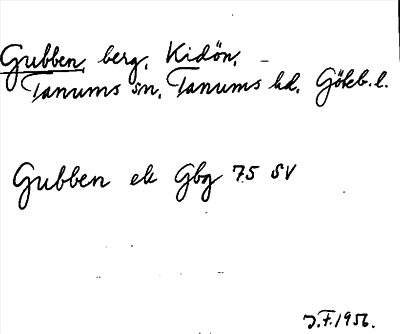 Gubben, berg, Kidön,
Tanums sn, Tanums hd, Göteb. l.
Gubben ek Gbg 75 SV
J.F. 1956.